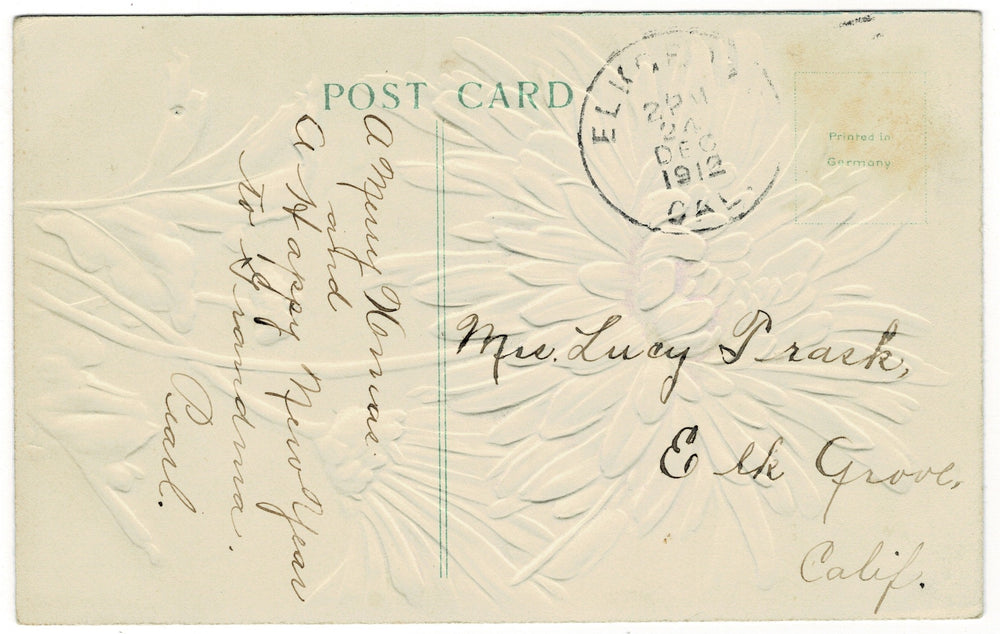 POST CARD
ELK GROV
2 PM
24
DEC
1912
CAL.
Printed in
Germany
A Merry Xmas.
and
A Happy New Year
To Grandma.
Pearl.
Mrs. Lucy Trask,
Elk Grove,
Calif.